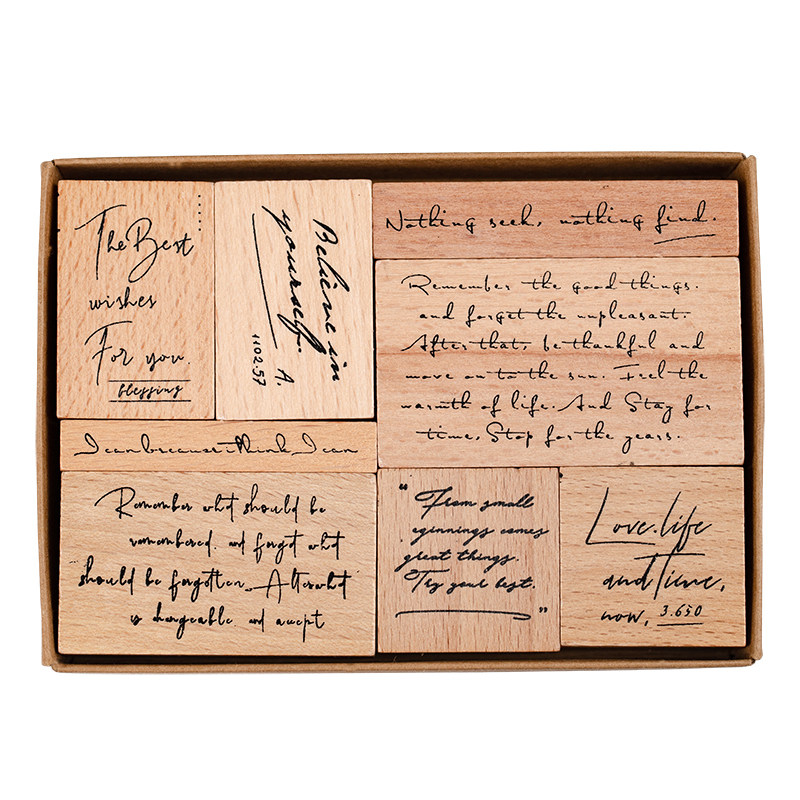 The Best
wishes
For you.
blessing
Believe in
yourself.
A.
1102.57
Nothing seek, nothing find.
Remember the good things.
and forget the unpleasant.
After that, be thankful and
move on to the sun. Feel the
warmth of life. And Stay for
time, Stop for the years.
I can because i think I can
Remember what should be
remembered. and forgot what
should be forgotten. Alter what
is changeable. and accept
“From small
eginnings comes
great things.
Try your best.”
Love.life
and Time,
now, 3.650